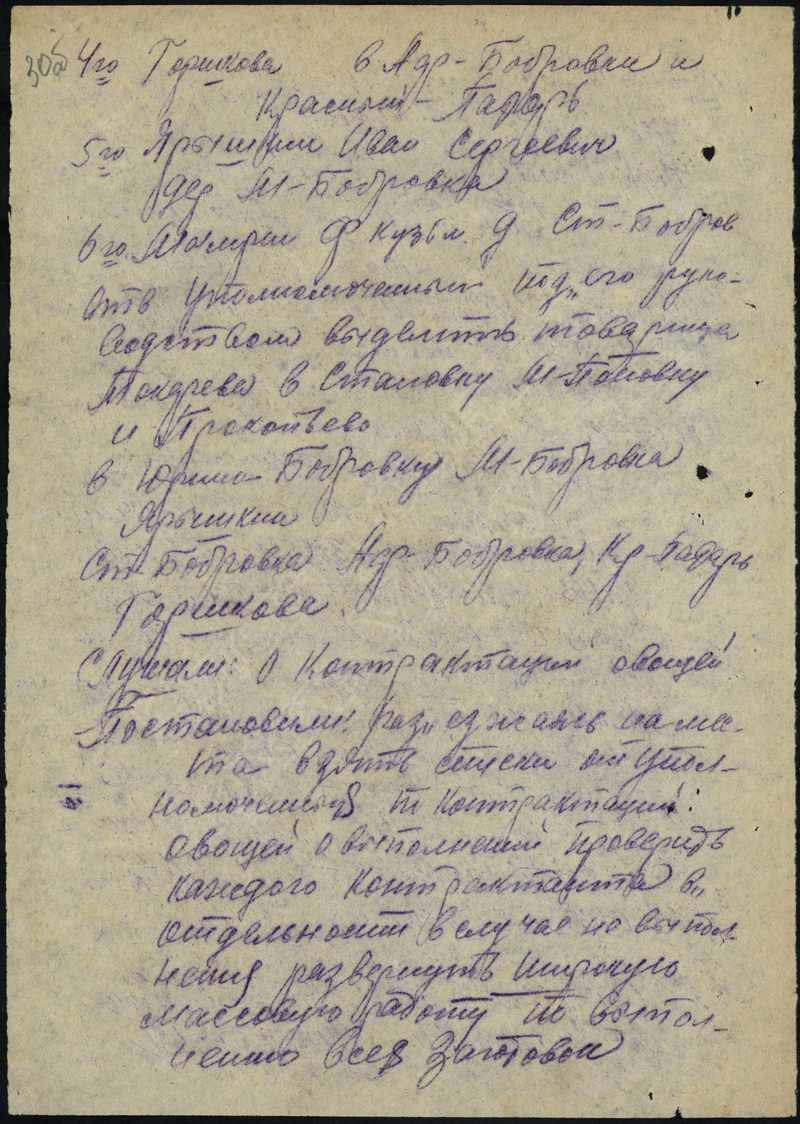 30б 4го Горшкова в Адр-Бобровки и
Красный-Падарь
5го Ярышкин Иван Сергеевич
дер М-Бобровка
6го Ф Кузьм. Д Ст-Бобров
Отв Уполномоченный под,, его руко-
водством выделить товарища
Токарева в Сталовку М-Поповку
и Прокопьево
в Юрино-Бобровку М-Бобровка
Ярышкин
Ст-Бобровка Адр-Бобровка, Кр-Падарь
Горшкова.
Слушали: О Контрактации овощей
Постановили: раз,, езжаясь на ме-
ста взять списки от Упол-
номоченных Контрактации:
овощей о выполнений проверить
каждого Контрактанта в,,
отдельности в случае не выпол-
нения развернуть широкую
массовую работу по выпол-
нению всех Заготовок